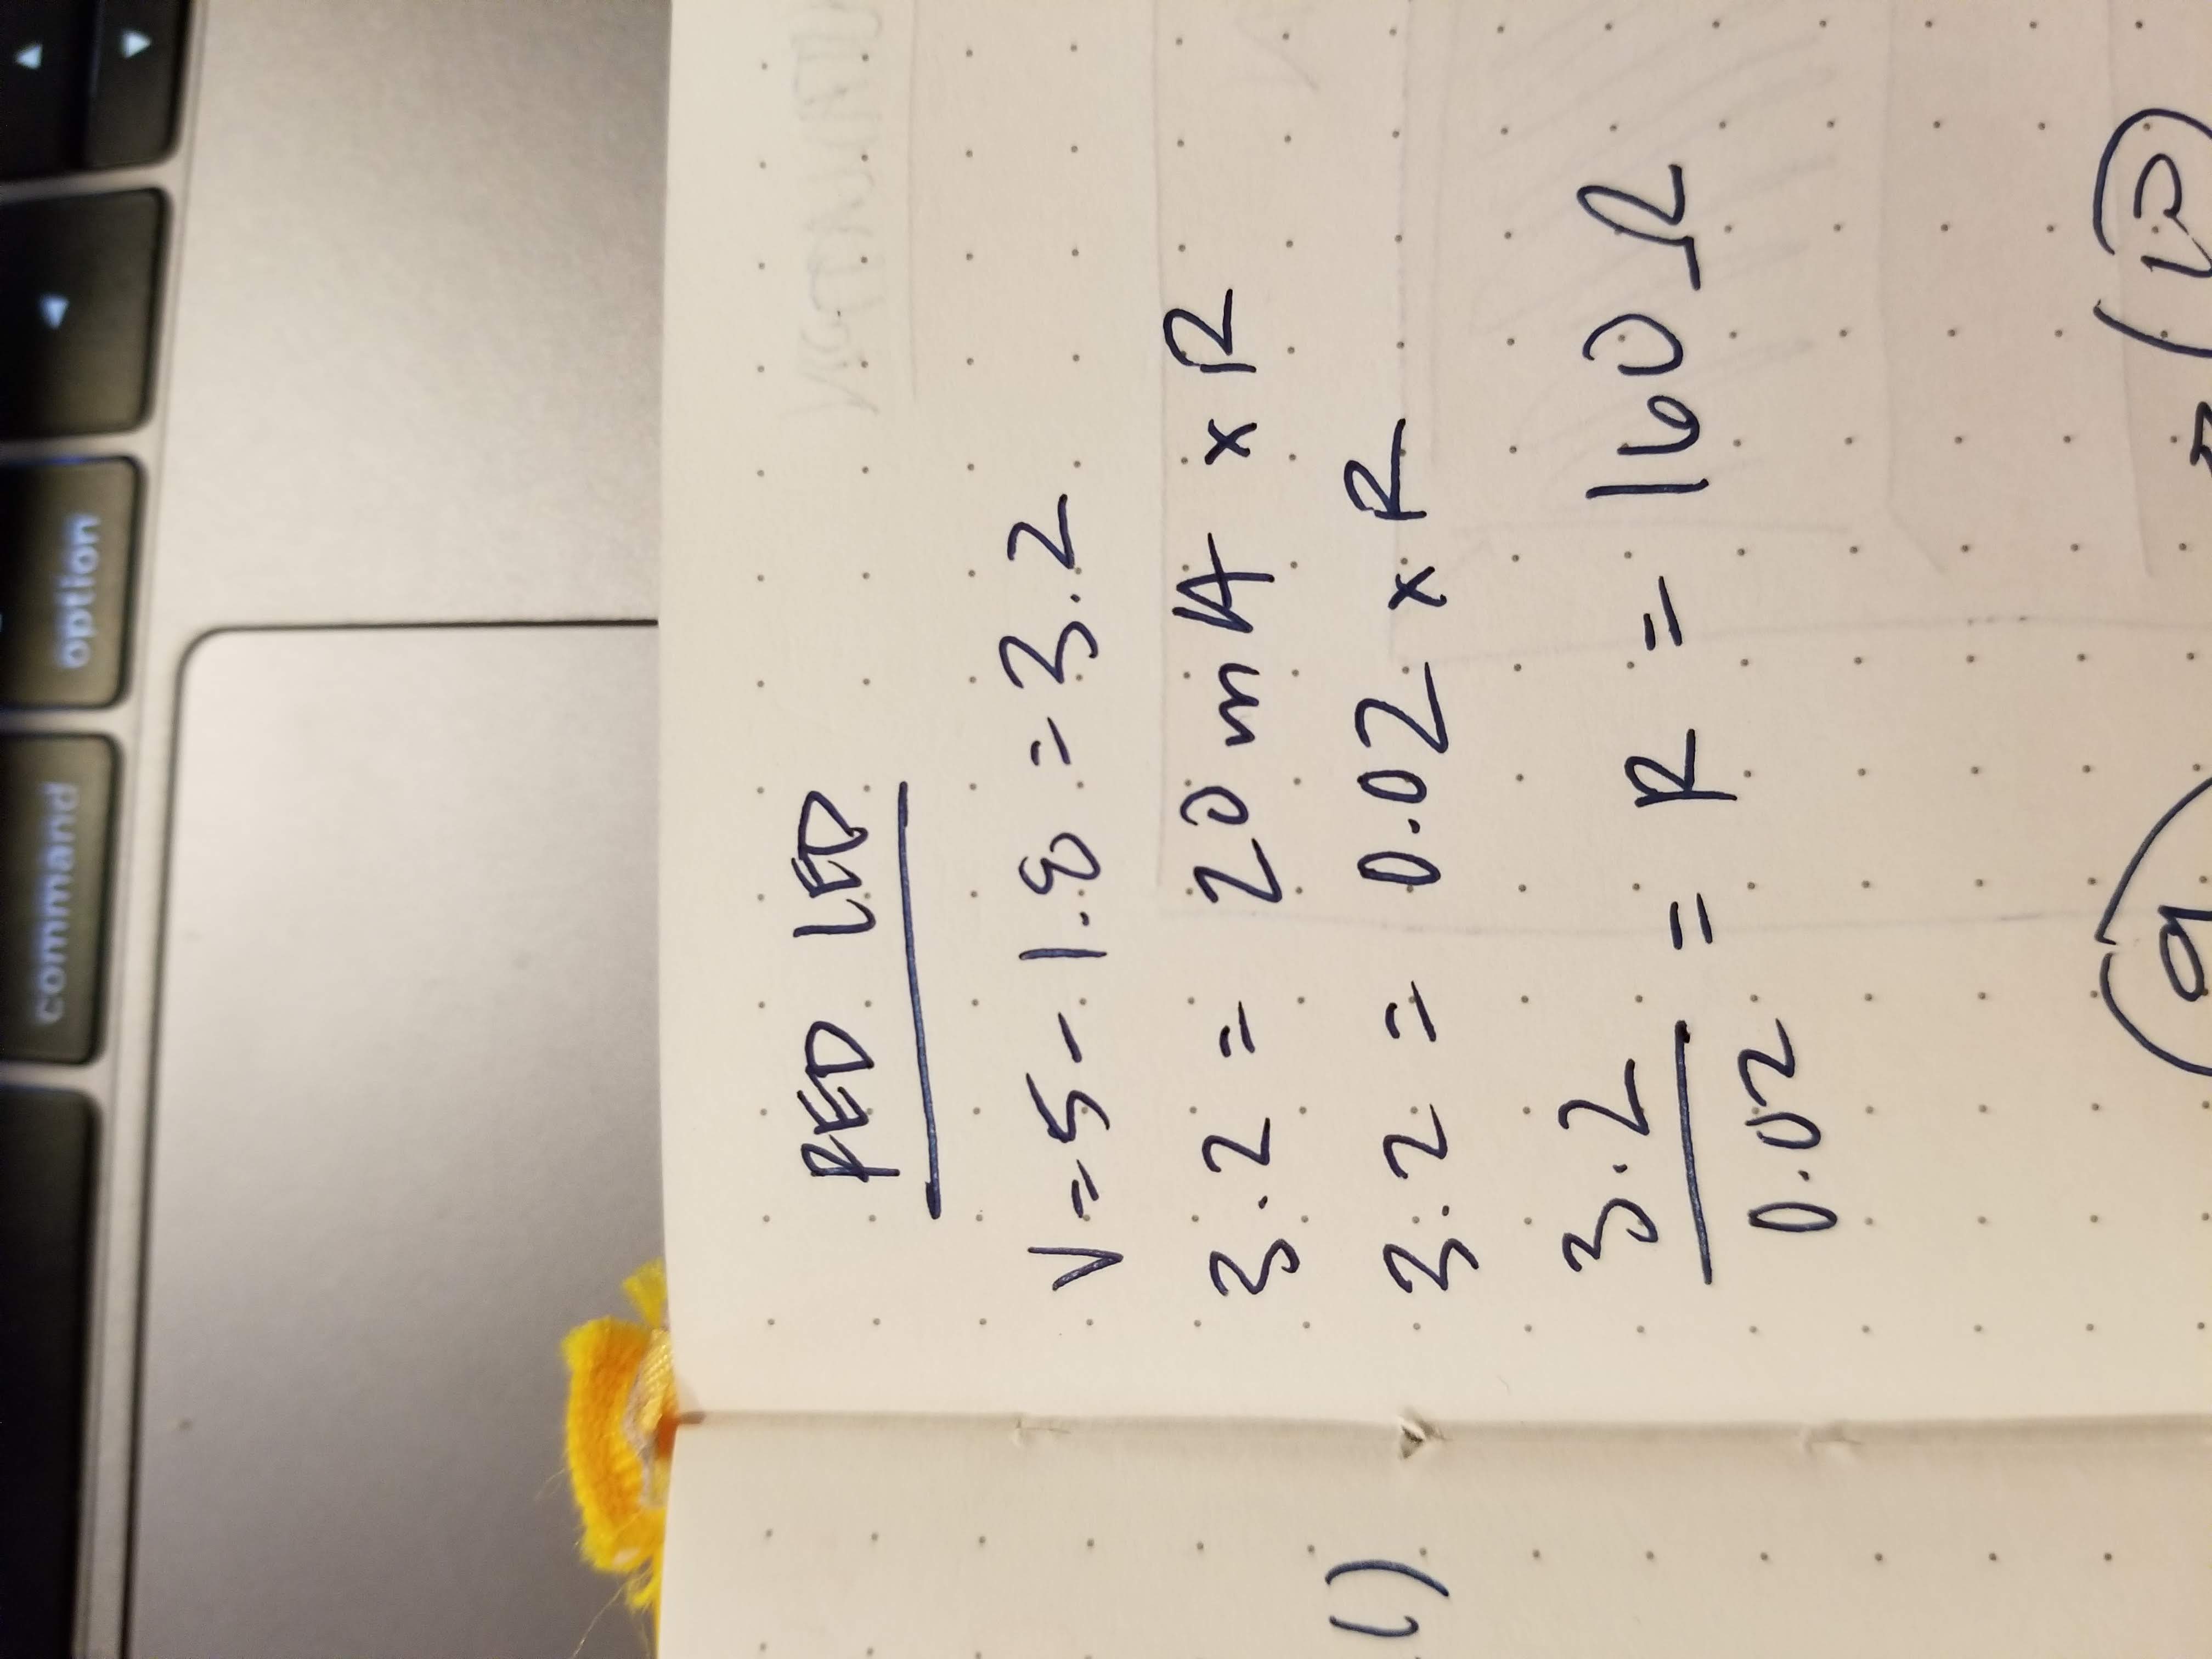 command option ◀ ▲
▼
RED LED
V = 5 - 1.8 = 3.2
3.2 = 20 mA x R
3.2 = 0.02 x R
()
3.2
/ 0.02 = R = 160 Ω
9 10